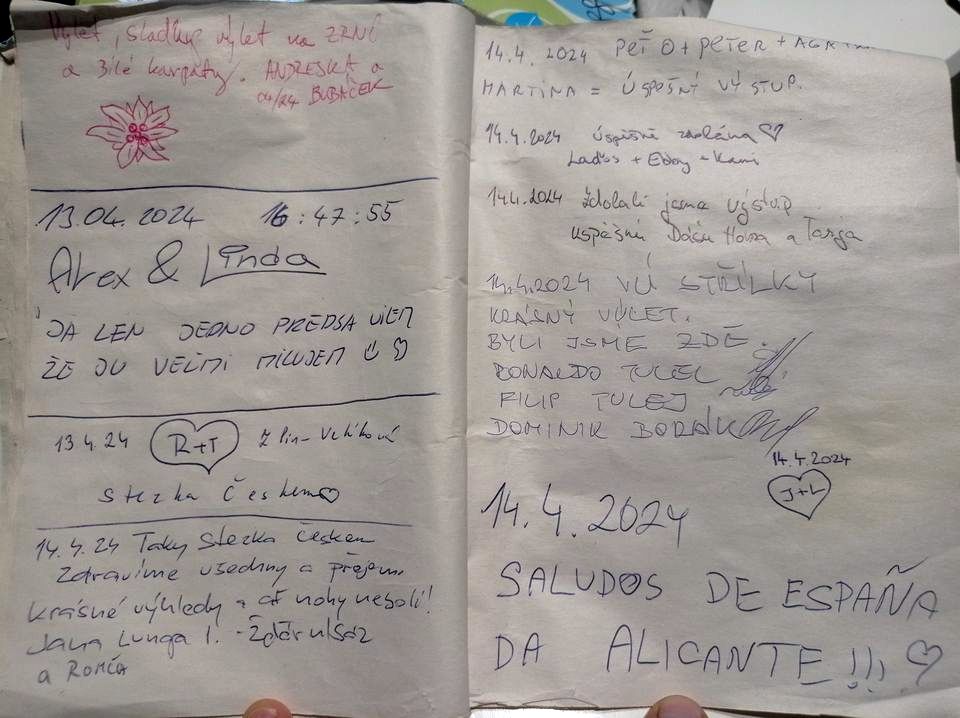 Výlet, sladký výlet na ZRNÍ
a Bílé karpaty. ANDREJKA a
04/24 BUBÁČEK
13.04.2024 16:47:55
Alex & Linda
JA LEN JEDNO PREDSA VIEM
ŽE JU VEĽMI MILUJEM
13 4.24 R+T Zlín-Velíková
Stezka Českem
14.4.24 Taky Stezka českem
Zdravíme všechny a přejem
krásné výhledy a ať nohy nebolí!
Jana Lunga I. - Žďár n/Sáz
a Romča
14.4. 2024 PEŤO + PETER +
MARTINA = ÚSPOŠNÝ VÝSTUP.
14.4.2024 úspěšně zdolána
+ Kami
14.4.2024 Zdolali jsme výstup
úspěšně a Tanja
14.4.2024 VÚ STŘÍLKY
KRÁSNÝ VÝLET.
BYLI JSME ZDE.
RONALDO TULEJ
FILIP TULEJ
DOMINIK BORÁK
14.4.2024
J+L
14.4.2024
SALUDOS DE ESPAÑA
DA ALICANTE!!!